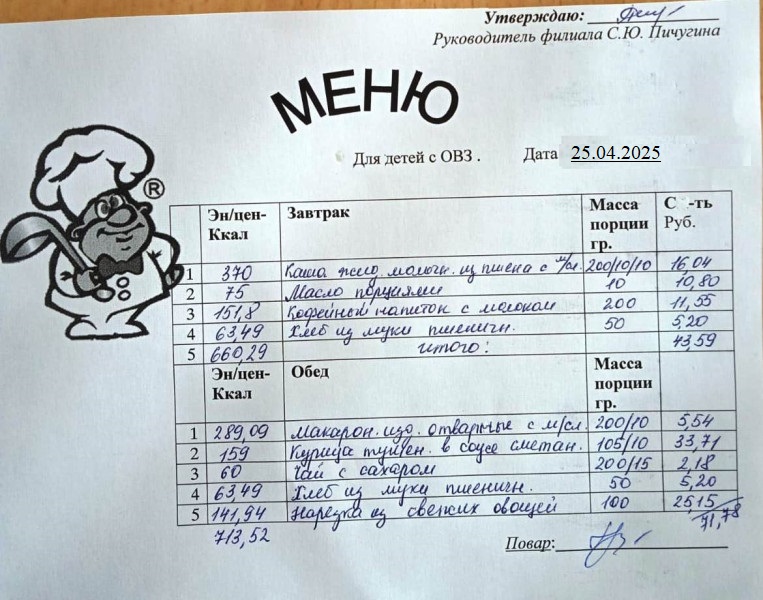 Утверждаю:
Руководитель филиала С.Ю. Пичугина
МЕНЮ
Для детей с ОВЗ . Дата 25.04.2025
®
Эн/цен-Ккал Завтрак Масса порции гр. С -ть Руб.
1 370 Каша жид. молочн. из пшена с м/сл. 200/10/10 16,04
2 75 Масло порциями 10 10,80
3 151,8 Кофейный напиток с молоком 200 11,55
4 63,49 Хлеб из муки пшеничн. 50 5,20
5 660,29 итого: 43,59
Эн/цен-Ккал Обед Масса порции гр.
1 289,09 Макарон. изд. отварные с м/сл. 200/10 5,54
2 159 Курица тушен. в соусе сметан. 105/10 33,71
3 60 Чай с сахаром 200/15 2,18
4 63,49 Хлеб из муки пшеничн. 50 5,20
5 141,94 Нарезка из свежих овощей 100 25,15
713,52 71,78
Повар: